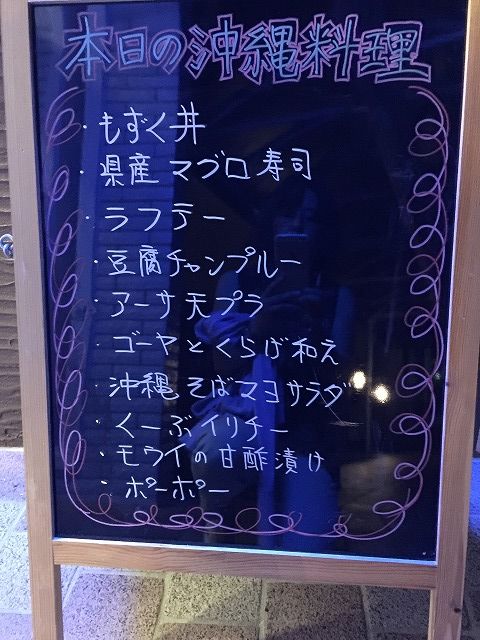 本日の沖縄料理
・もずく丼
・県産マグロ寿司
・ラフテー
・豆腐チャンプルー
・アーサ天プラ
・ゴーヤとくらげ和え
・沖縄そばマヨサラダ
・くーぶイリチー
・モウイの甘酢漬け
・ポーポー